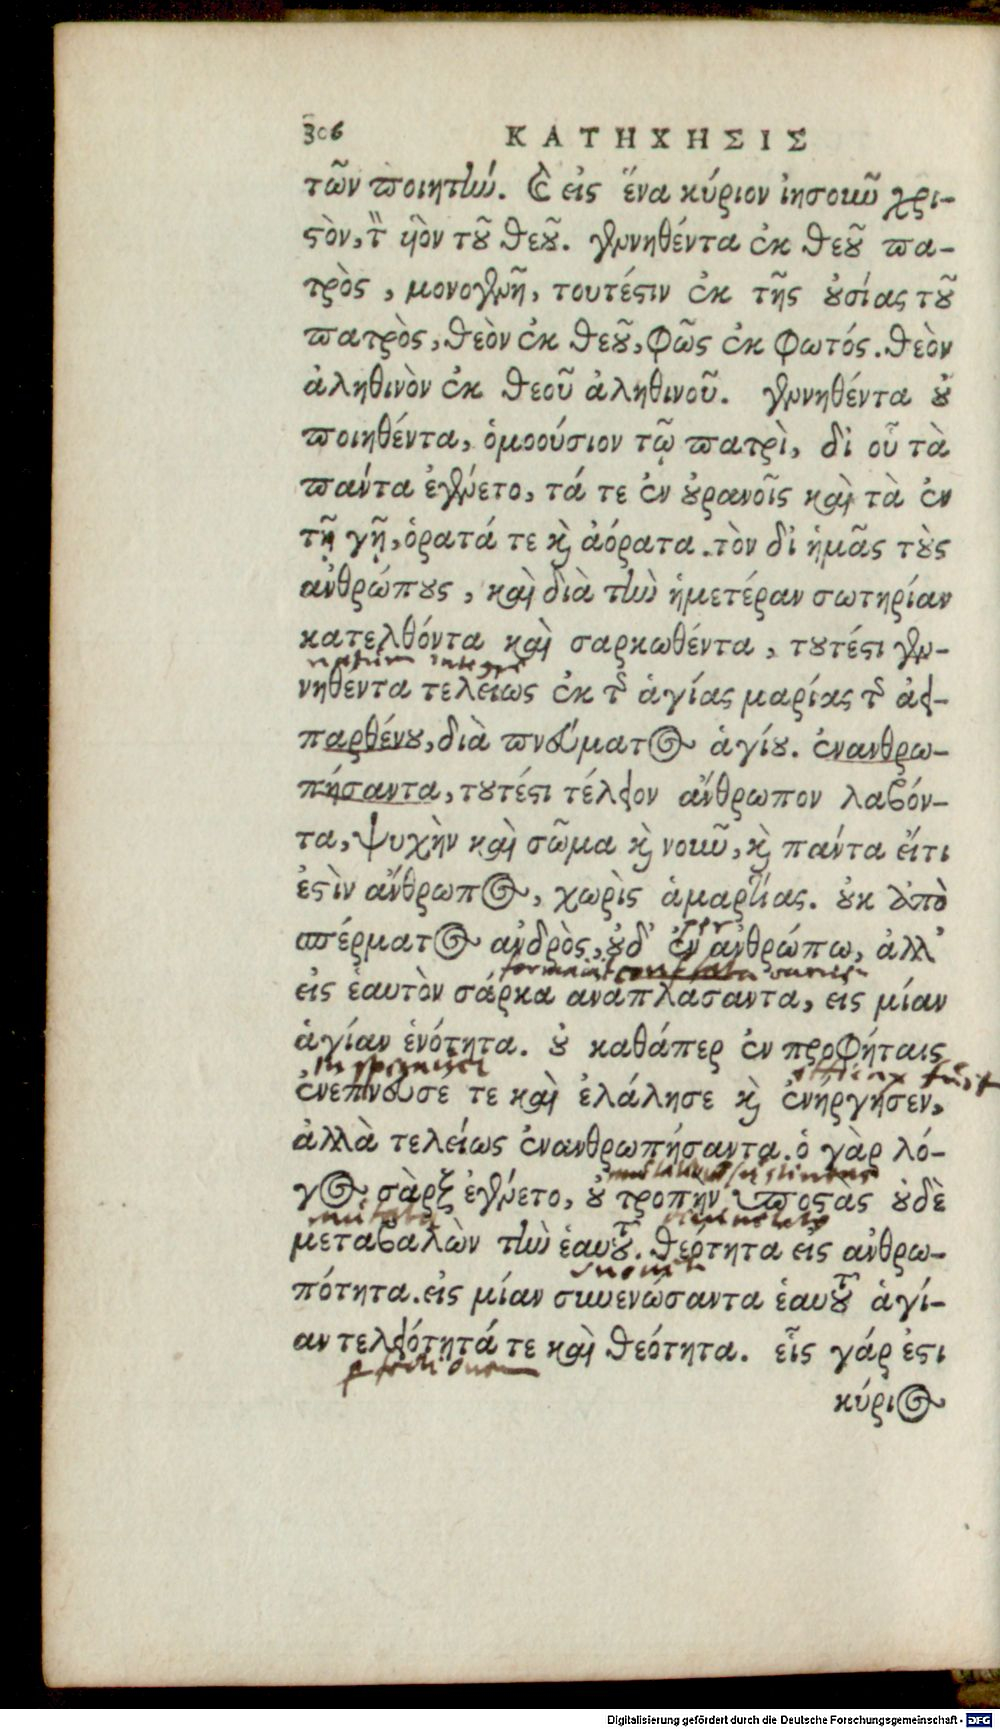 306 ΚΑΤΗΧΗΣΙΣ
τῶν ποιητὴν. Καὶ εἰς ἕνα κύριον ἰησοῦν χρι-
στὸν, τὸν υἱὸν τοῦ θεοῦ. γεννηθέντα ἐκ θεοῦ πα-
τρὸς, μονογενῆ, τουτέστιν ἐκ τῆς οὐσίας τοῦ
πατρὸς, θεὸν ἐκ θεοῦ, φῶς ἐκ φωτός. θεὸν
ἀληθινὸν ἐκ θεοῦ ἀληθινοῦ. γεννηθέντα οὐ
ποιηθέντα, ὁμοούσιον τῷ πατρὶ, δι οὗ τὰ
πάντα ἐγένετο, τά τε ἐν οὐρανοῖς καὶ τὰ ἐν
τῇ γῇ, ὁρατά τε καὶ ἀόρατα. τὸν δι ἡμᾶς τοὺς
ἀνθρώπους, καὶ διὰ τὴν ἡμετέραν σωτηρίαν
κατελθόντα καὶ σαρκωθέντα, τουτέστι γεν-
νηθέντα τελείως ἐκ τῆς ἁγίας μαρίας τῆς ἀει-
παρθένου, διὰ πνεύματος ἁγίου. ἐνανθρω-
πήσαντα, τουτέστι τέλειον ἄνθρωπον λαβόν-
τα, ψυχὴν καὶ σῶμα καὶ νοῦν, καὶ πάντα εἴτι
ἐστὶν ἄνθρωπος, χωρὶς ἁμαρτίας. οὐκ ἀπὸ
σπέρματος ἀνδρὸς, οὐδ' ἐν ἀνθρώπω, ἀλλ'
εἰς ἑαυτὸν σάρκα ἀναπλάσαντα, εἰς μίαν
ἁγίαν ἑνότητα. οὐ καθάπερ ἐν προφήταις
ἐνέπνευσε τε καὶ ἐλάλησε καὶ ἐνήργησεν,
ἀλλὰ τελείως ἐνανθρωπήσαντα. ὁ γὰρ λό-
γος σὰρξ ἐγένετο, οὐ τροπὴν ὑποστὰς οὐδὲ
μεταβαλὼν τὴν ἑαυτοῦ. θεότητα εἰς ἀνθρω-
πότητα. εἰς μίαν συνενώσαντα ἑαυτοῦ ἁγί-
αν τελειότητά τε καὶ θεότητα. εἷς γάρ ἐστι
κύριος
Digitalisierung gefördert durch die Deutsche Forschungsgemeinschaft - DFG